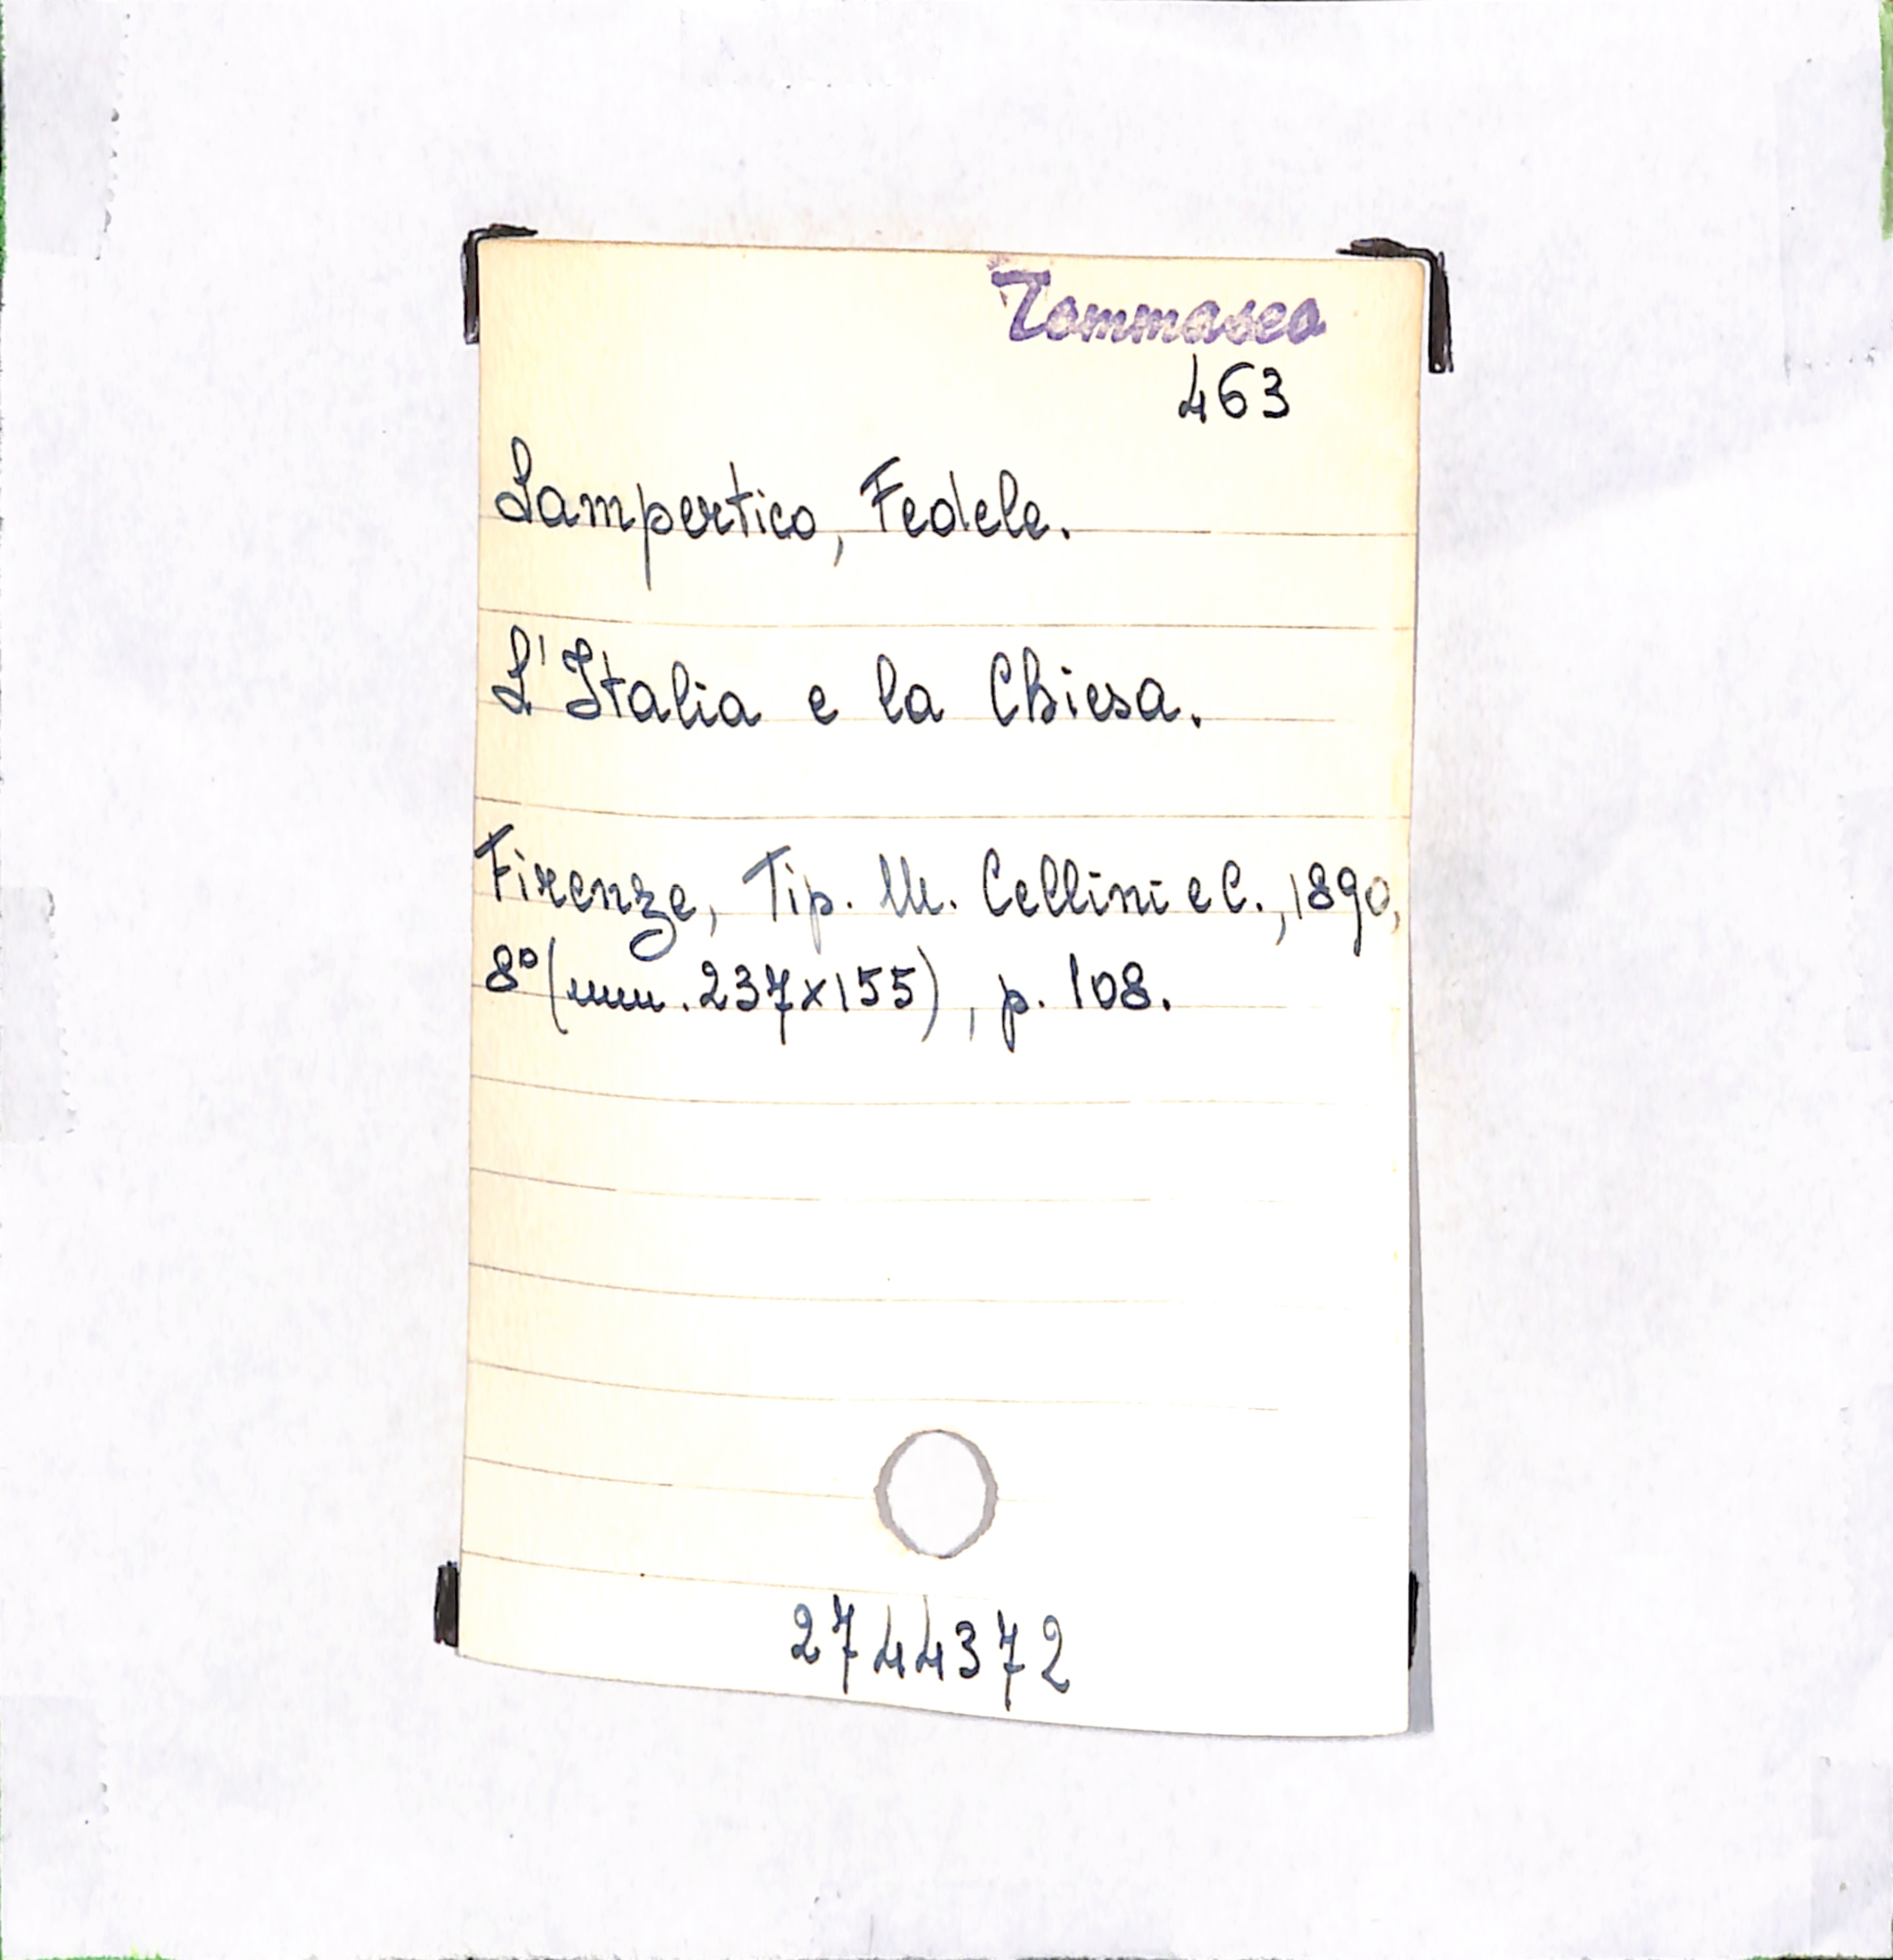 Tommaseo
463
Lampertico, Fedele.
L'Italia e la Chiesa.
Firenze, Tip. M. Cellini e C., 1890,
8° (mm. 237x155), p. 108.
2744372